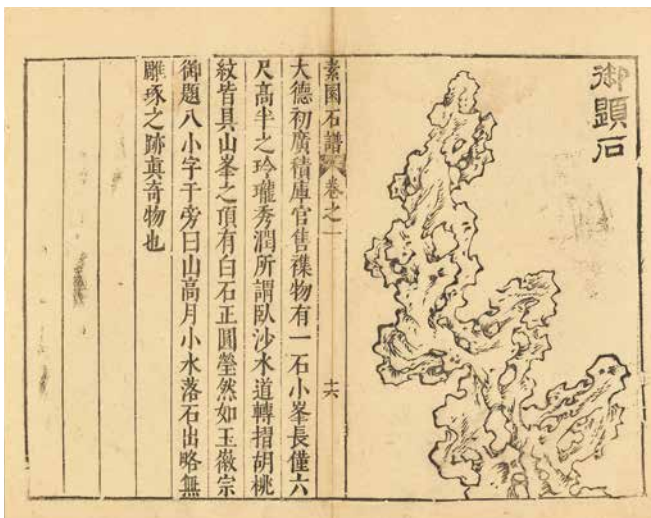 御題石
素園石譜 卷之一 十六
大德初廣積庫官售襍物有一石小峯長僅六
尺高半之玲瓏秀潤所謂臥沙水道轉摺胡桃
紋皆具山峯之頂有白石正圓瑩然如玉徽宗
御題八小字于旁曰山高月小水落石出略無
雕琢之跡真奇物也